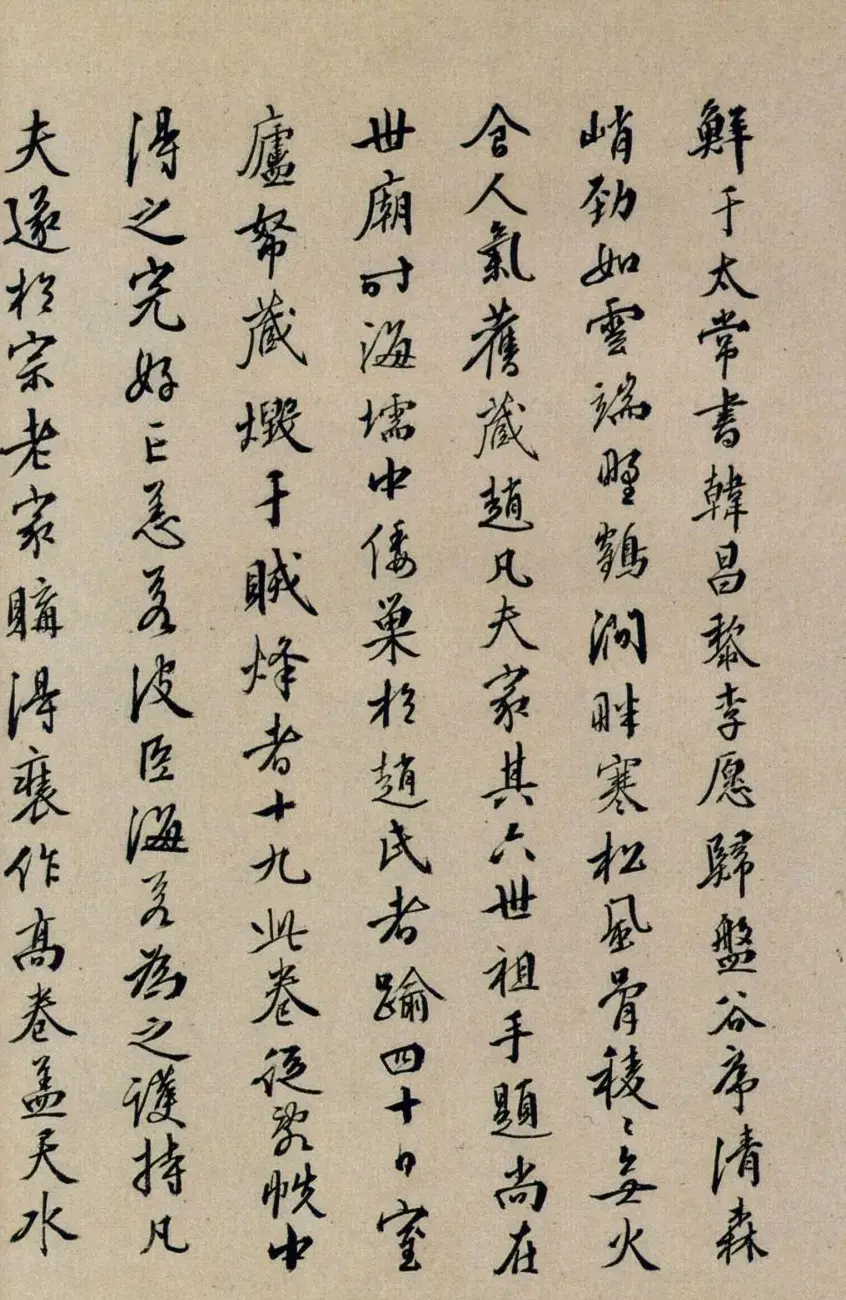 鮮于太常書韓昌黎李愿歸盤谷序清森
峭勁如雲端野鶴澗畔寒松風骨稜〻無火
食人氣舊藏趙凡夫家其六世祖手題尚在
世廟時海壖中倭巢於趙氏者踰四十日室
廬帑藏燬于賊烽者十九此卷從敗帙中
得之完好亡恙若波臣海若為之護持凡
夫遂於宗老家購得裝作高卷蓋天水